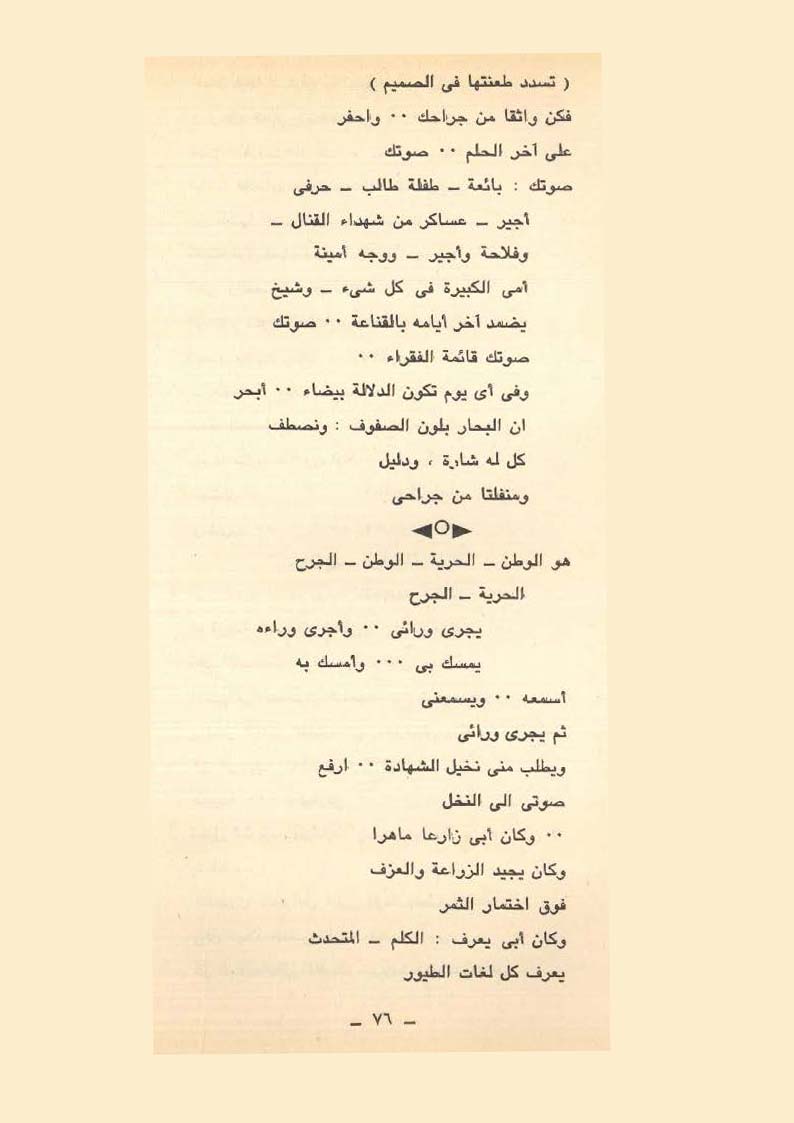 ( تسدد طعنتها فى الصميم )
فكن واثقا من جراحك ٠٠ واحفر
على آخر الحلم ٠٠ صوتك
صوتك : بائعة – طفلة طالب – حرفى
أجير – عساكر من شهداء القنال –
وفلاحة وأجير – ووجه أمينة
أمى الكبيرة فى كل شىء – وشيخ
يضمد آخر أيامه بالقناعة ٠٠ صوتك
صوتك قائمة الفقراء ٠٠
وفى أى يوم تكون الدلالة بيضاء ٠٠ أبحر
ان البحار بلون الصفوف : ونصطف
كل له شارة ، ودليل
ومنفلتا من جراحى
هو الوطن – الحرية – الوطن – الجرح
الحرية – الجرح
يجرى ورائى ٠٠ وأجرى وراءه
يمسك بى ٠٠٠ وأمسك به
أسمعه ٠٠ ويسمعنى
ثم يجرى ورائى
ويطلب منى نخيل الشهادة ٠٠ ارفع
صوتى الى النخل
٠٠ وكان أبى زارعا ماهرا
وكان يجيد الزراعة والعزف
فوق اختمار الثمر
وكان أبى يعرف : الكلم – المتحدث
يعرف كل لغات الطيور
– ٧٦ –